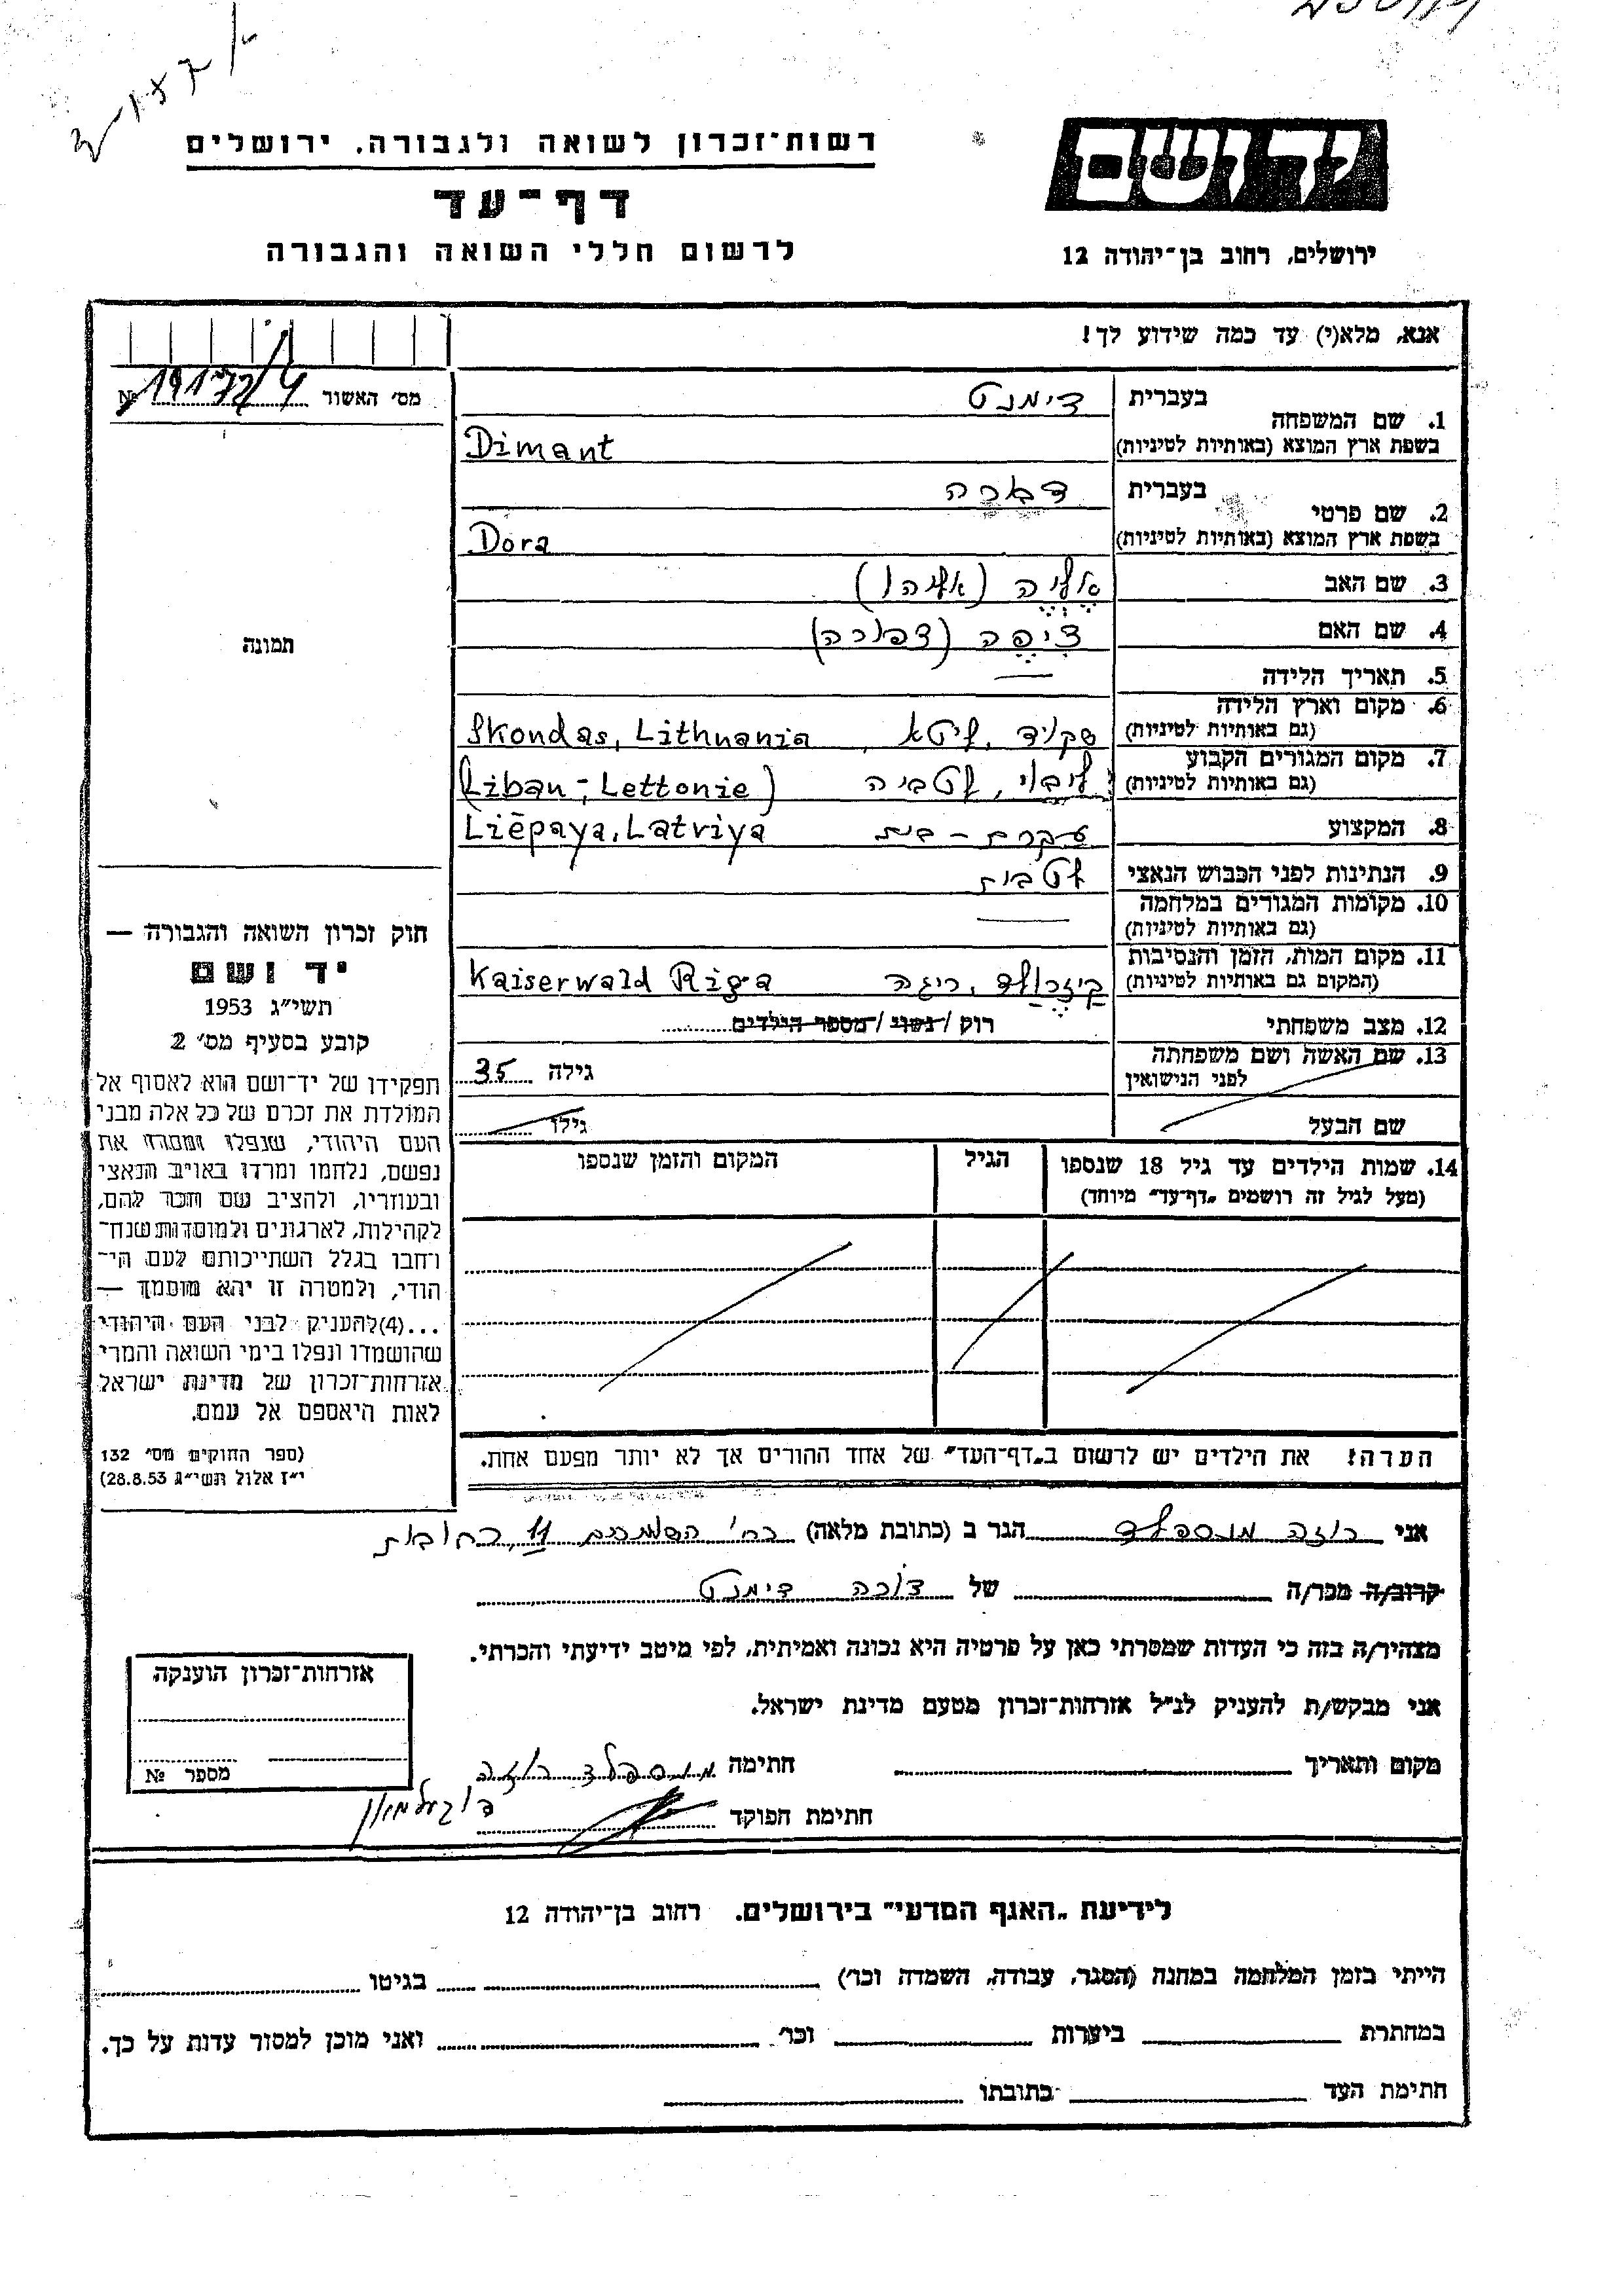 יד ושם
רשות־זכרון לשואה ולגבורה, ירושלים
דף־עד
לרשום חללי השואה והגבורה
ירושלים, רחוב בן־יהודה 12
אנא, מלא(י) עד כמה שידוע לך!
מס׳ האשור № 19172/4
תמונה
1. שם המשפחה בעברית דימנט
בשפת ארץ המוצא (באותיות לטיניות) Dimant
2. שם פרטי בעברית דורה
בשפת ארץ המוצא (באותיות לטיניות) Dora
3. שם האב אליה (אליהו)
4. שם האם ציפה (צפורה)
5. תאריך הלידה —
6. מקום וארץ הלידה
(גם באותיות לטיניות) שקוד, ליטא, Skondas, Lithuania
7. מקום המגורים הקבוע
(גם באותיות לטיניות) ליבוי, לטביה (Liban; Lettonie)
8. המקצוע עקרת-בית Liepaya, Latviya
9. הנתינות לפני הכבוש הנאצי לטבית
10. מקומות המגורים במלחמה
(גם באותיות לטיניות) —
11. מקום המות, הזמן והנסיבות
(המקום גם באותיות לטיניות) קיזרולד, ריגה Kaiserwald Riga
12. מצב משפחתי רוק / נשוי / מספר הילדים
13. שם האשה ושם משפחתה
לפני הנישואין גילה 35
שם הבעל גילו
14. שמות הילדים עד גיל 18 שנספו הגיל המקום והזמן שנספו
(מעל לגיל זה רושמים „דף־עד” מיוחד)
הערה! את הילדים יש לרשום ב„דף־העד” של אחד ההורים אך לא יותר מפעם אחת.
חוק זכרון השואה והגבורה —
יד ושם
תשי״ג 1953
קובע בסעיף מס׳ 2
תפקידו של יד־ושם הוא לאסוף אל
המולדת את זכרם של כל אלה מבני
העם היהודי, שנפלו ומסרו את
נפשם, נלחמו ומרדו באויב הנאצי
ובעוזריו, ולהציב שם וזכר להם,
לקהילות, לארגונים ולמוסדות שנח־
רחבו בגלל השתייכותם לעם הי־
הודי, ולמטרה זו יהא מוסמך —
...(4) להעניק לבני העם היהודי
שהושמדו ונפלו בימי השואה והמרי
אזרחות־זכרון של מדינת ישראל
לאות היאספם אל עמם.
(ספר החוקים מס׳ 132
י״ז אלול תשי״ג 28.8.53)
אני רוזה מוספלד הגר ב (כתובת מלאה) רח׳ 11, רחובות
קרוב/ה מכר/ה של דורה דימנט
מצהיר/ה בזה כי העדות שמסרתי כאן על פרטיה היא נכונה ואמיתית, לפי מיטב ידיעתי והכרתי.
אני מבקש/ת להעניק לנ״ל אזרחות־זכרון מטעם מדינת ישראל.
מקום ותאריך חתימה מוספלד רוזה
חתימת הפוקד
אזרחות־זכרון הוענקה
מספר №
לידיעת „האגף המדעי” בירושלים. רחוב בן־יהודה 12
הייתי בזמן המלחמה במחנה (הסגר, עבודה, השמדה וכו׳) בגיטו
במחתרת ביערות וכו׳ ואני מוכן למסור עדות על כך.
חתימת העד כתובתו